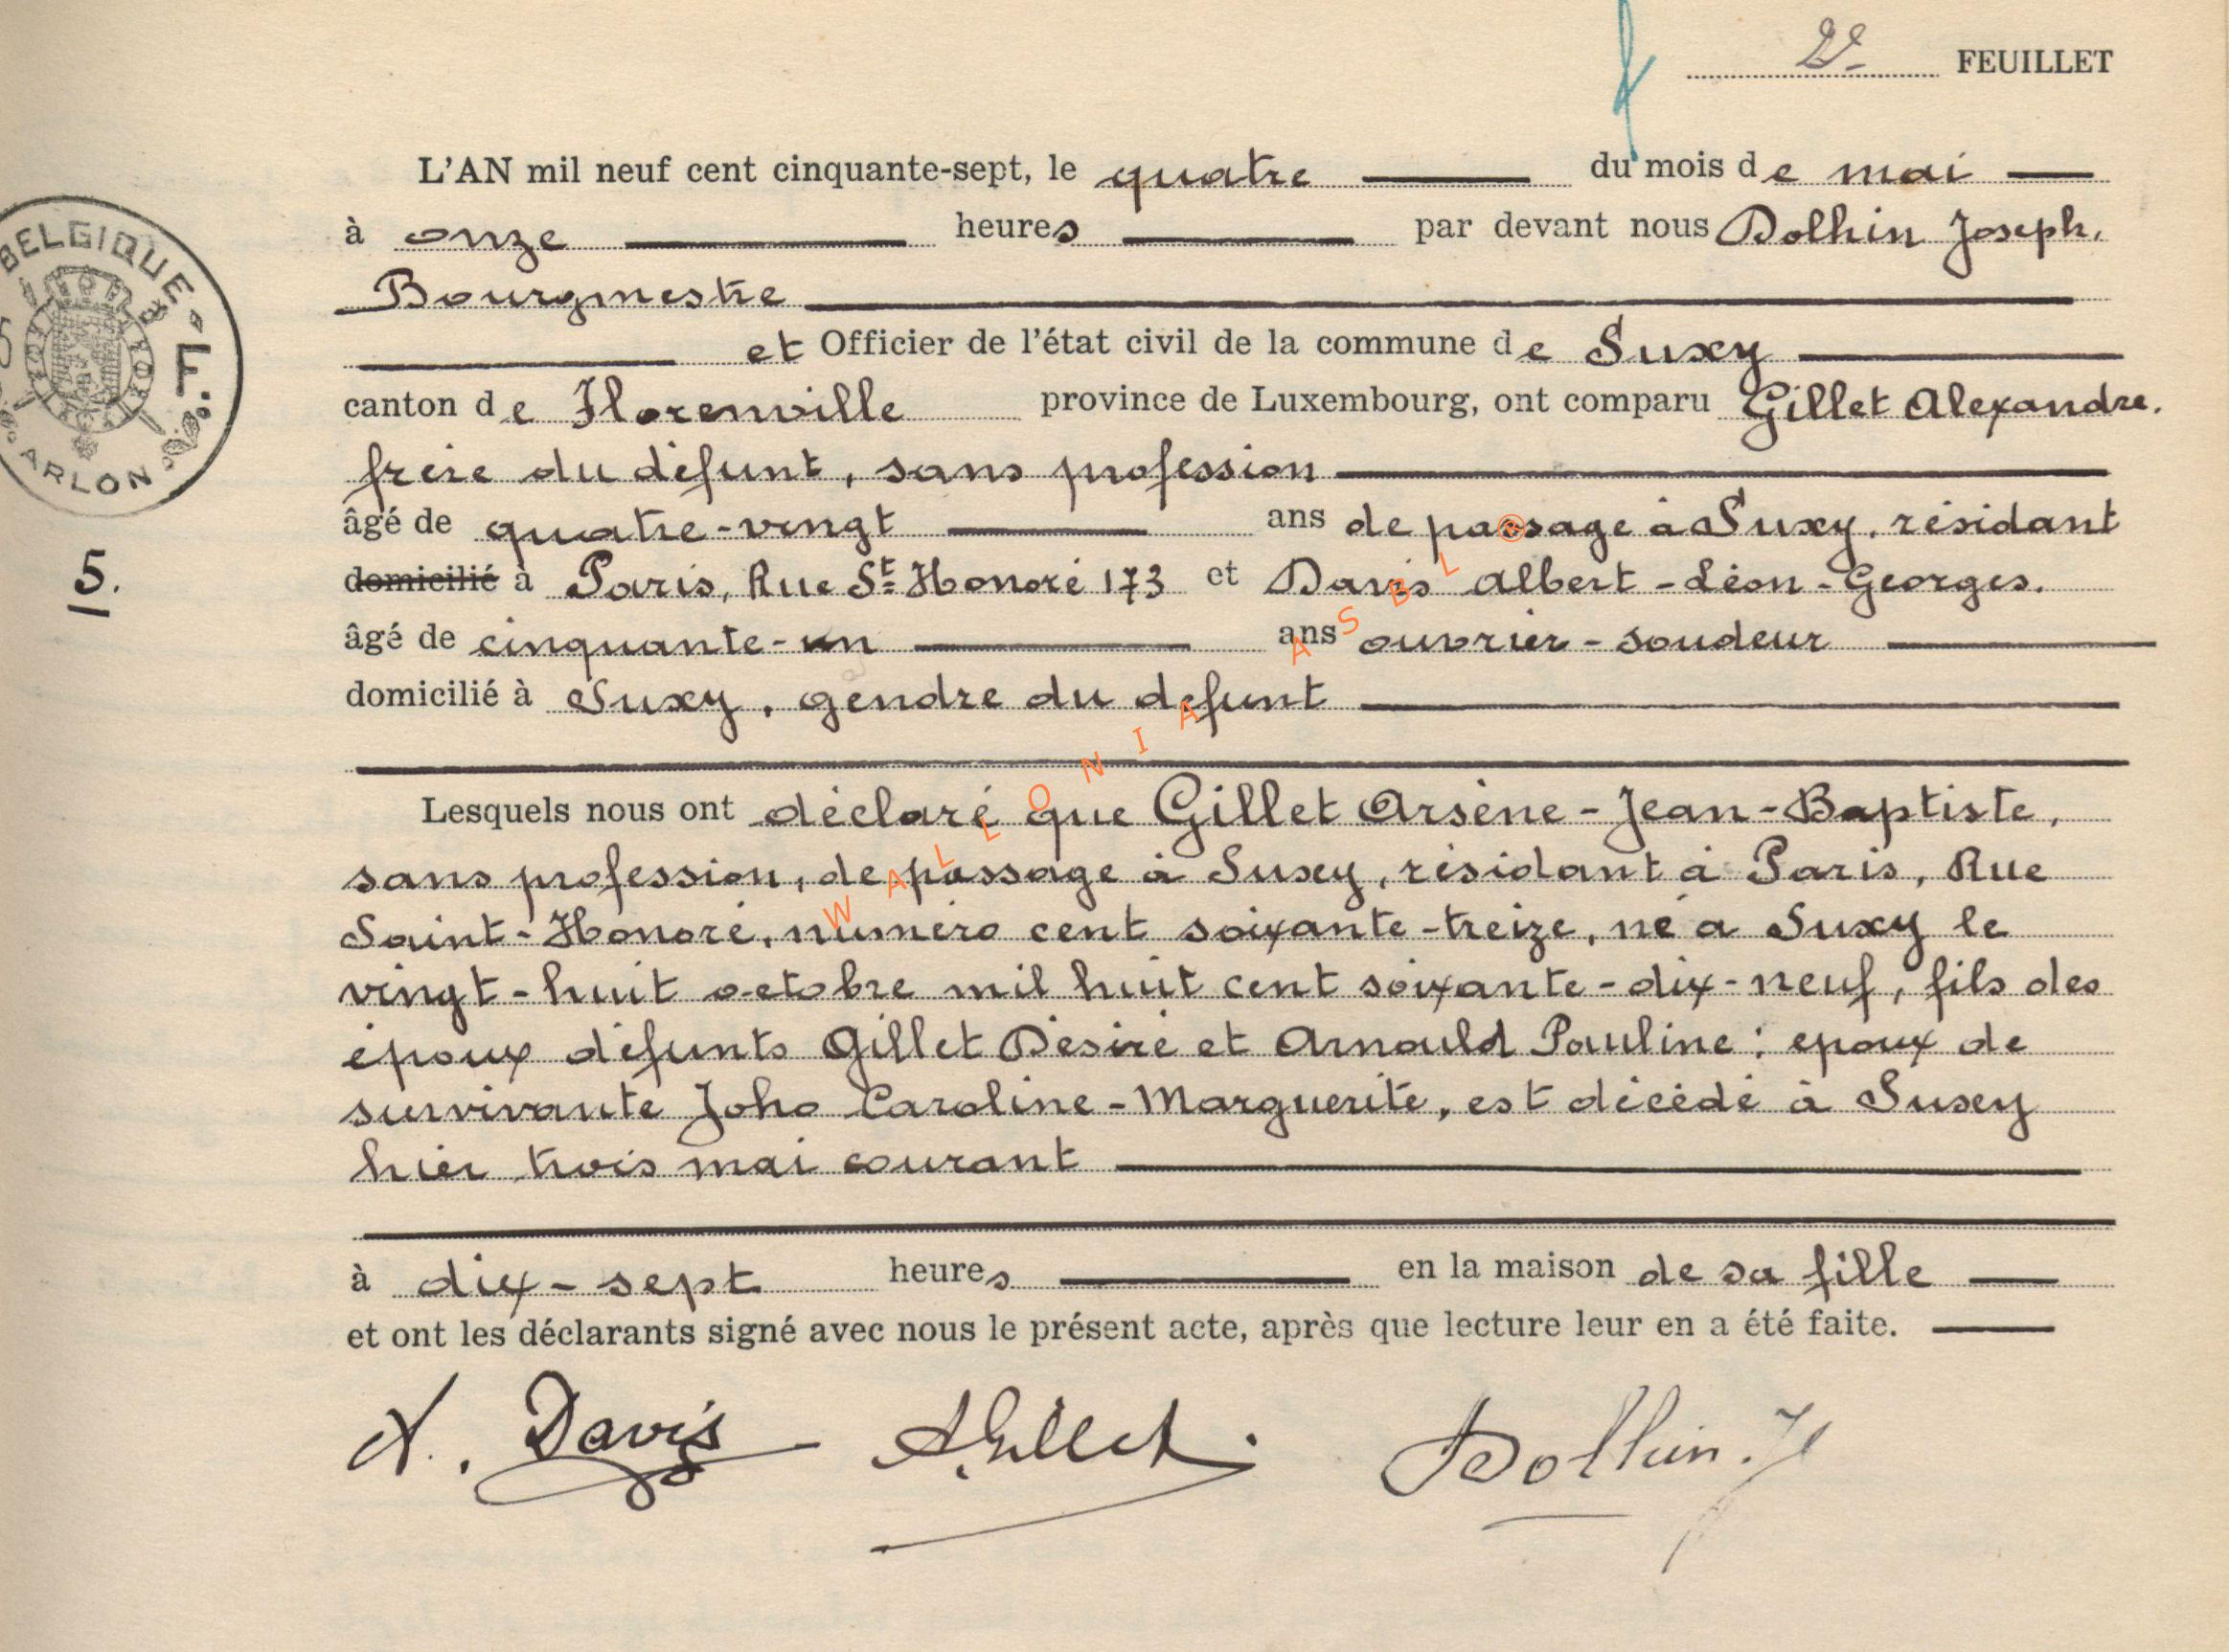 2e FEUILLET
L'AN mil neuf cent cinquante-sept, le quatre du mois de mai
à onze heures par devant nous Dolhin Joseph,
Bourgmestre
et Officier de l'état civil de la commune de Suxy
canton de Florenville province de Luxembourg, ont comparu Gillet Alexandre.
frère du défunt, sans profession
âgé de quatre-vingt ans de passage à Suxy, résidant
domicilié à Paris, Rue St Honoré 173 et Davis Albert-Léon-Georges.
âgé de cinquante-un ans ouvrier-soudeur
domicilié à Suxy, gendre du défunt
Lesquels nous ont déclaré que Gillet Arsène-Jean-Baptiste,
sans profession, de passage à Suxy, résidant à Paris, Rue
Saint-Honoré, numéro cent soixante-treize, né à Suxy le
vingt-huit octobre mil huit cent soixante-dix-neuf, fils des
époux défunts Gillet Désiré et Arnould Pauline; époux de
survivante Joho Caroline-Marguerite, est décédé à Suxy
hier trois mai courant
à dix-sept heures en la maison de sa fille
et ont les déclarants signé avec nous le présent acte, après que lecture leur en a été faite.
A. Davis A. Gillet. Dolhin. J
BELGIQUE - F.
ARLON
5.
WALLONIA ASBL ®